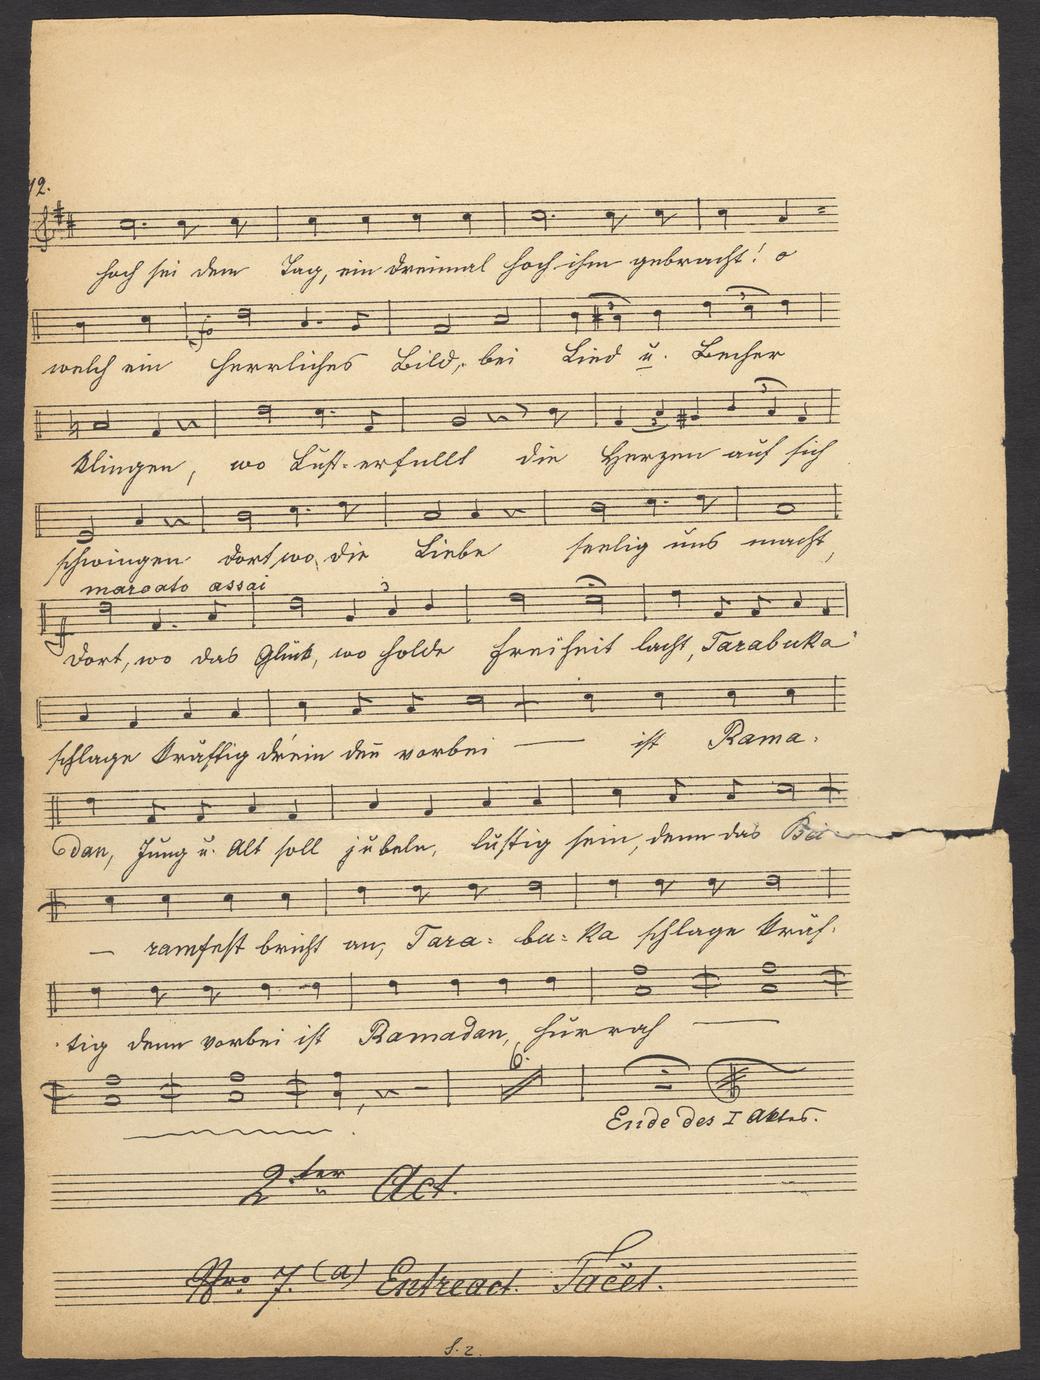 12.
hoch sei dem Tag, ein dreimal hoch ihm gebracht! o
welch ein herrliches Bild, bei Lied u. Becher
klingen, wo Lust-erfüllt die Herzen auf sich
schwingen dort, wo die Liebe seelig uns macht,
marcato assai
3
dort, wo das Glück, wo holde Freiheit lacht, Tarabuka
schlage kräftig drein den̅ vorbei — ist Rama-
dan, Jung u. Alt soll jubeln, lustig sein, denn das Bei
— ramfest bricht an, Tara- bu- ka schlage kräf-
tig denn vorbei ist Ramadan, hurrah —
6.
Ende des I Aktes.
2ter Act.
Nro 7. (a) Entreact. Tacet.
S. 2.